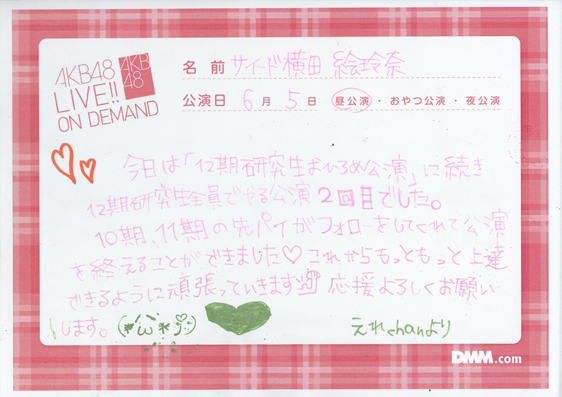 AKB48
LIVE!!
ON DEMAND
AKB
48
名前 サイード横田 絵玲奈
公演日 6月5日 昼公演・おやつ公演・夜公演
今日は「12期研究生おひろめ公演」に続き
12期研究生全員でやる公演2回目でした。
10期、11期の先パイがフォローをしてくれて公演
を終えることができました♡これからもっともっと上達
できるように頑張っていきます 応援よろしくお願い
します。
えれchanより
DMM.com